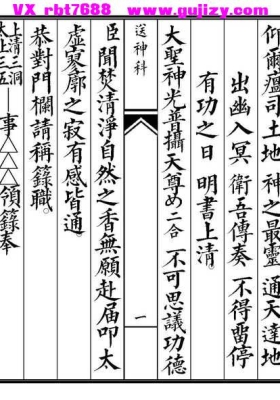 VX rbt7688  www.gujizy.com
仰爾瘟司土地神之最靈通天達地
出幽入冥衛吾傳奏不得留停
有功之日明書上清
大聖神光普攝天尊め二合不可思議功德
送神科
一
臣聞梵清淨自然之香無願赴届叩太
虛寥廓之寂有感皆通
恭對門欄請稱籙職
上清三洞
太上三五
事△△△領籙奉